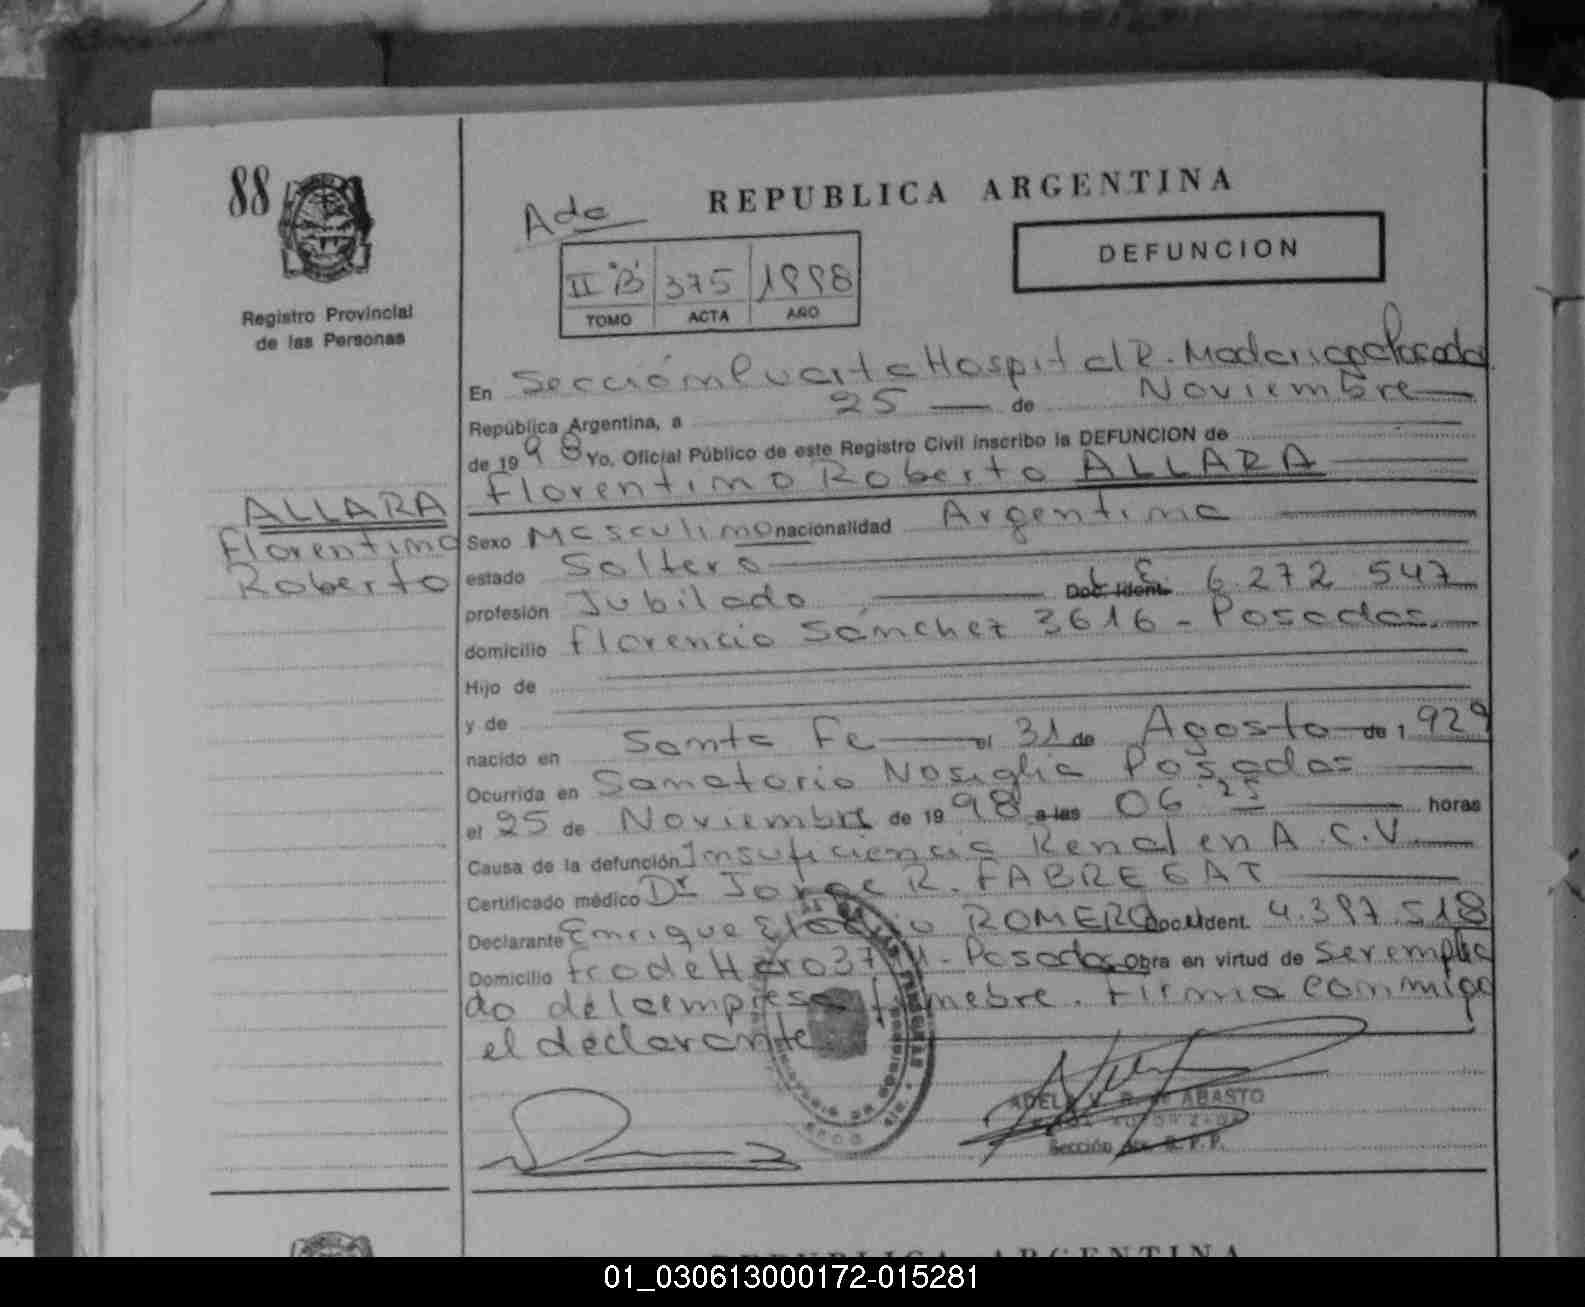 88
Registro Provincial
de las Personas
Ada
REPUBLICA ARGENTINA
DEFUNCION
II "B" 375 1998
TOMO ACTA AÑO
En Sección Puerta Hospital R. Madariaga Posadas
República Argentina, a 25 de Noviembre
de 1998 Yo, Oficial Público de este Registro Civil inscribo la DEFUNCION de
Florentino Roberto ALLARA
ALLARA
Florentino
Roberto
Sexo Masculino nacionalidad Argentina
estado Soltero
profesión Jubilado Doc. Ident. L.E. 6.272.547
domicilio Florencio Sánchez 3616 - Posadas.
Hijo de
y de
nacido en Santa Fe el 31 de Agosto de 1929
Ocurrida en Sanatorio Nosiglia Posadas
el 25 de Noviembre de 1998 a las 06:25 horas
Causa de la defunción Insuficiencia Renal en A.C.V.
Certificado médico Dr Jorge R. FABREGAT
Declarante Enrique ROMERO Doc. Ident. 4.397.518
Domicilio Fco de Haro - Posadas Obra en virtud de Ser emplea
do de la empresa fúnebre. Firma conmigo
el declarante
ADELA V. B. de ABASTO
Sección R.P.P.
REPUBLICA ARGENTINA
01_030613000172-015281